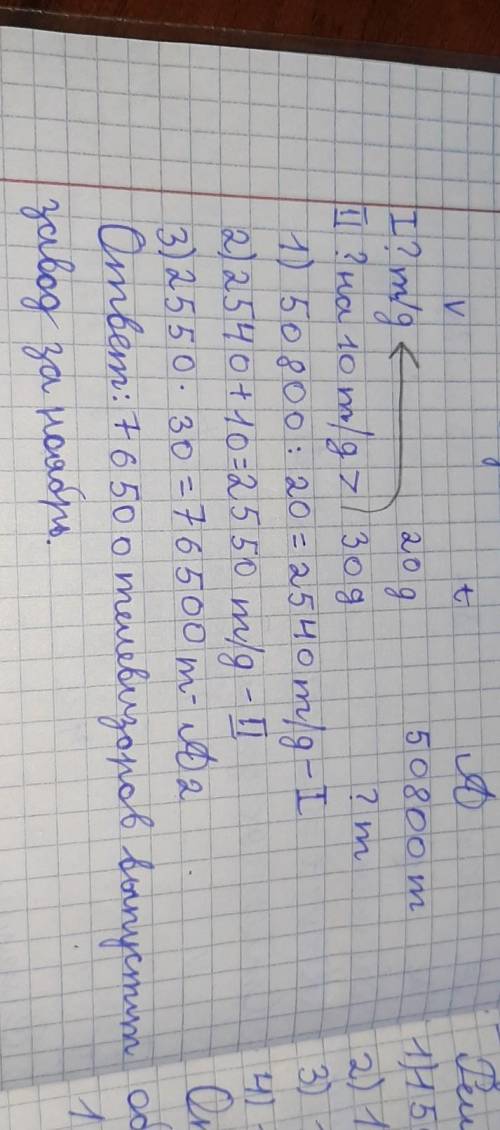 v t A
I ? т/д 20д 50800 т
II ? на 10 т/д > 30д ? т
1) 50800 : 20 = 2540 т/д - I
2) 2540 + 10 = 2550 т/д - II
3) 2550 · 30 = 76500 т - A 2
Ответ: 76500 телевизоров выпустит
завод за ноябрь.
1) 15
2) 1
3)
4)
об
1